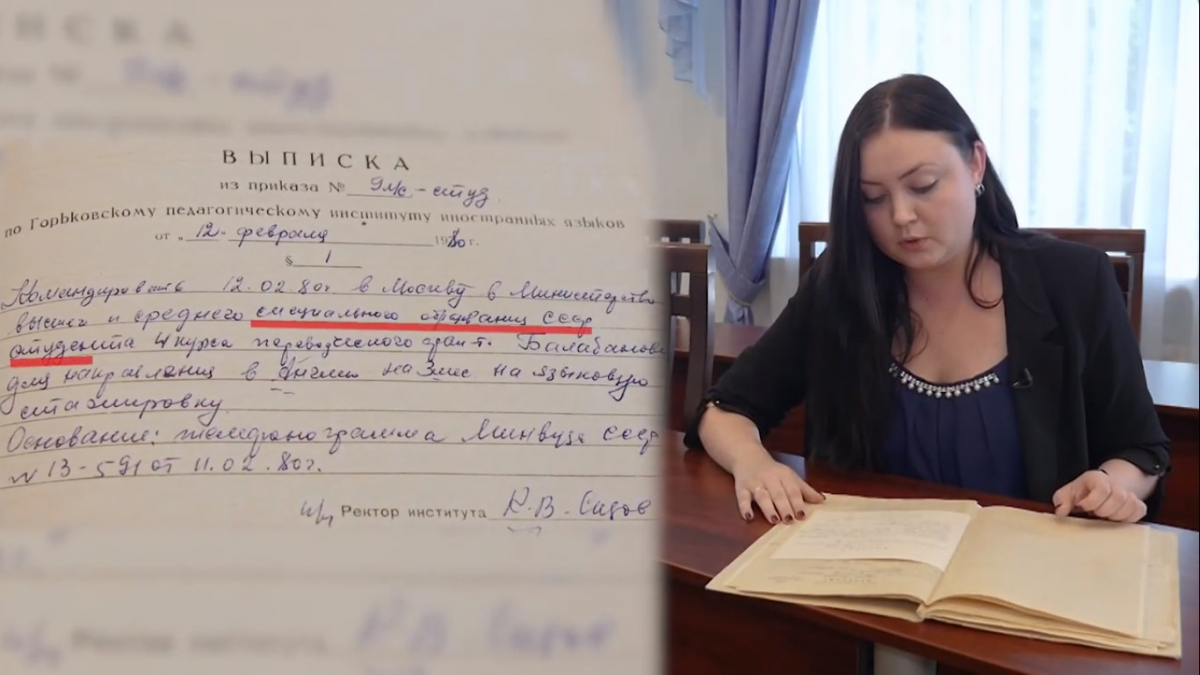 ВЫПИСКА
из приказа № 9лк - студ
по Горьковскому педагогическому институту иностранных языков
от „12" февраля 1980 г.
§ 1
Командировать 12.02.80г. в Москву в Министерство
высшего и среднего специального образования СССР
студента 4 курса переводческого фак-т. Балабанова
для направления в Англию на 3 мес на языковую
стажировку.
Основание: телефонограмма Минвуза СССР
N 13-591 от 11.02.80г.
и/о Ректор института